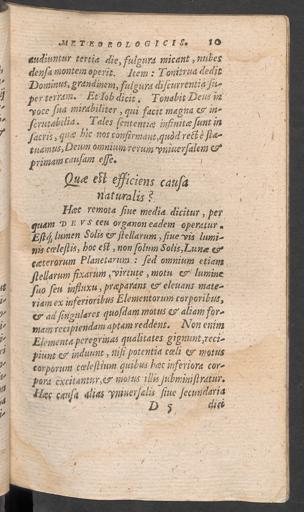 METEOROLOGICIS. 10
audiuntur tertia die, fulgura micant, nubes
densa montem operit. Item: Tonitrua dedit
Dominus, grandinem, fulgura discurrentia su-
per terram. Et Iob dicit. Tonabit Deus in
voce sua mirabiliter, qui facit magna & in-
scrutabilia. Tales sententiæ infinitæ sunt in
sacris, quæ hîc nos confirmant, quòd rectè sta-
tuamus, Deum omnium rerum vniuersalem &
primam causam esse.
Quæ est efficiens causa
naturalis?
Hæc remota siue media dicitur, per
quam DEVS ceu organon eadem operatur.
Estq́ lumen Solis & stellarum, siue vis lumi-
nis cœlestis, hoc est, non solum Solis, Lunæ &
cæterorum Planetarum: sed omnium etiam
stellarum fixarum, virtute, motu & lumine
suo seu influxu, præparans & eleuans mate-
riam ex inferioribus Elementorum corporibus,
& ad singulares quosdam motus & aliam for-
mam recipiendam aptam reddens. Non enim
Elementa peregrinas qualitates gignunt, reci-
piunt & induunt, nisi potentia cœli & motus
corporum cœlestium quibus hæc inferiora cor-
pora excitantur, & motus illis subministratur.
Hæc causa aliàs vniuersalis siue secundaria
D 5 dici